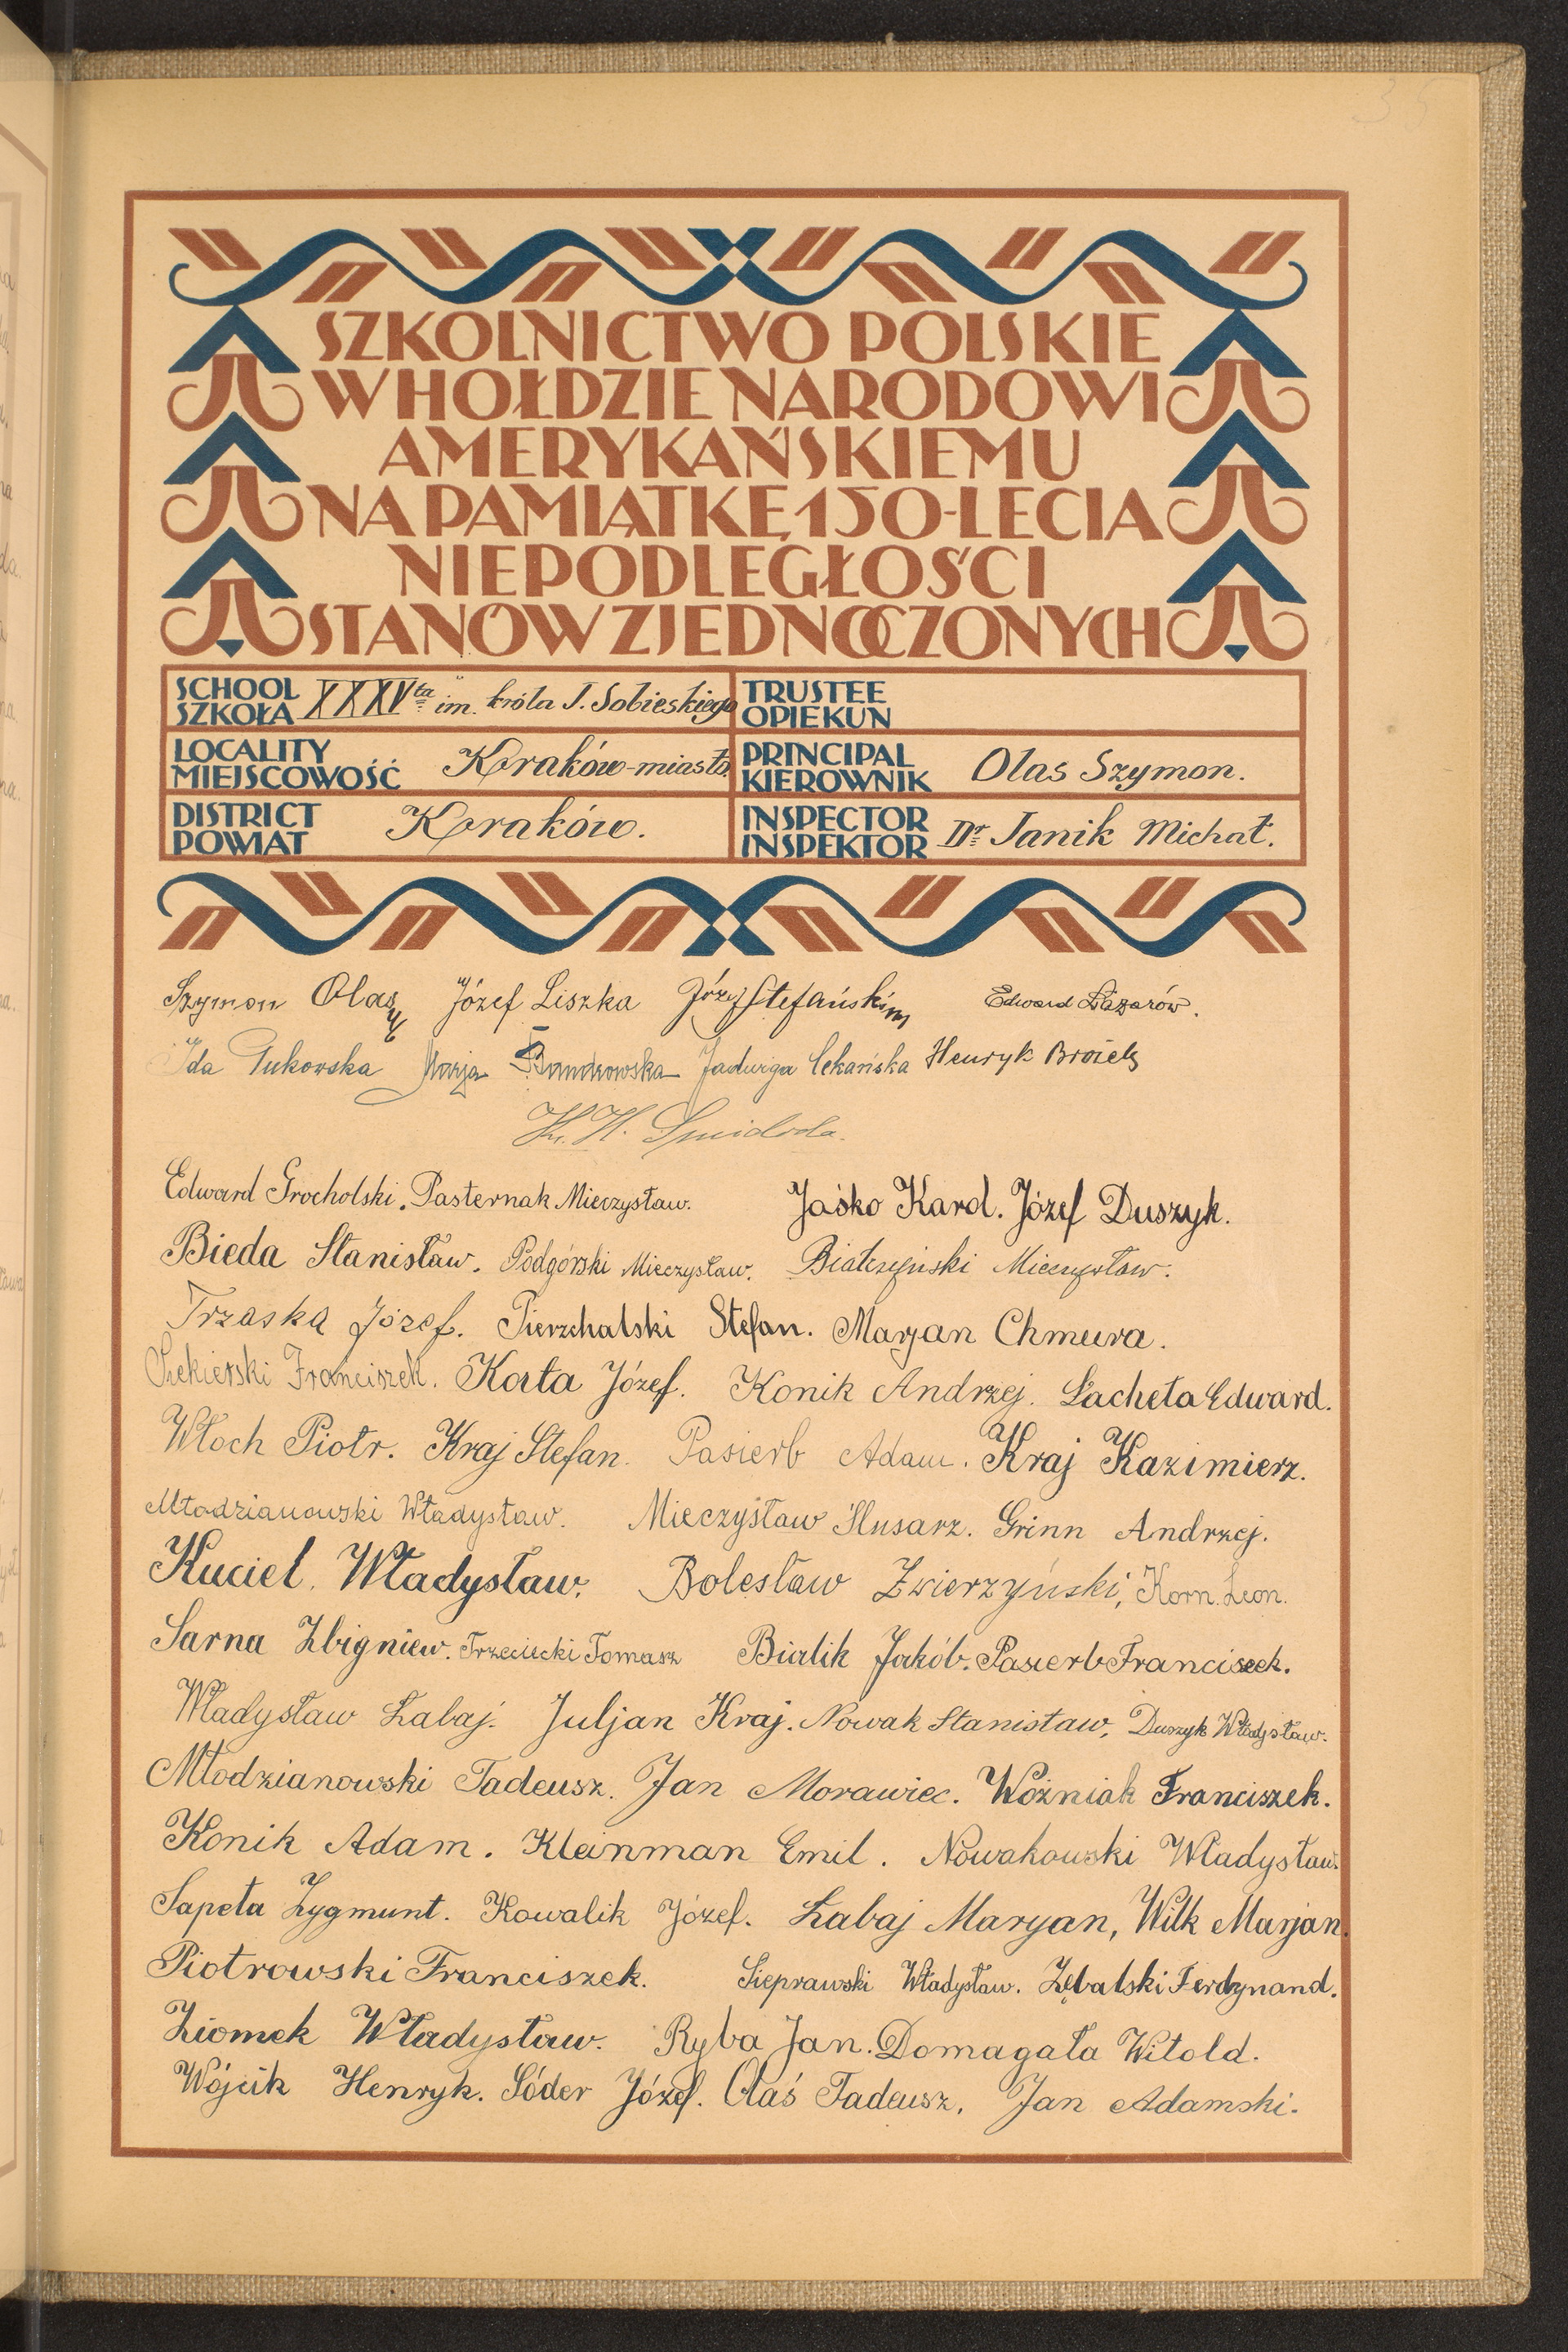 35
SZKOLNICTWO POLSKIE
W HOŁDZIE NARODOWI
AMERYKAŃSKIEMU
NA PAMIĄTKĘ 150-LECIA
NIEPODLEGŁOŚCI
STANÓW ZJEDNOCZONYCH
SCHOOL
SZKOŁA XXXVta im. króla J. Sobieskiego
TRUSTEE
OPIEKUN
LOCALITY
MIEJSCOWOŚĆ Kraków-miasto.
PRINCIPAL
KIEROWNIK Olas Szymon.
DISTRICT
POWIAT Kraków.
INSPECTOR
INSPEKTOR Dr Janik Michał.
Szymon Olas Józef Liszka Józef Stefański Edward Łazarów.
Ida Marja Bandrowska Jadwiga Henryk
Edward Grocholski. Pasternak Mieczysław. Jaśko Karol. Józef Duszyk.
Bieda Stanisław. Podgórski Mieczysław. Białczyński Mieczysław.
Trzaska Józef. Pierzchalski Stefan. Marjan Chmura.
Siekierski Franciszek. Korta Józef. Konik Andrzej. Łacheta Edward.
Włoch Piotr. Kraj Stefan. Pasierb Adam. Kraj Kazimierz.
Młodzianowski Władysław. Mieczysław Ślusarz. Grinn Andrzej.
Kuciel. Władysław. Bolesław Zwierzyński, Korn. Leon.
Sarna Zbigniew. Trzeciecki Tomasz Bialik Jakób. Pasierb Franciszek.
Władysław Łabaj. Juljan Kraj. Nowak Stanisław, Duszyk Władysław.
Młodzianowski Tadeusz. Jan Morawiec. Woźniak Franciszek.
Konik Adam. Kleinman Emil. Nowakowski Władysław.
Sapeta Zygmunt. Kowalik Józef. Łabaj Maryan, Wilk Marjan.
Piotrowski Franciszek. Sieprawski Władysław. Zębalski Ferdynand.
Ziomek Władysław. Ryba Jan. Domagała Witold.
Wójcik Henryk. Sóder Józef. Olaś Tadeusz. Jan Adamski.